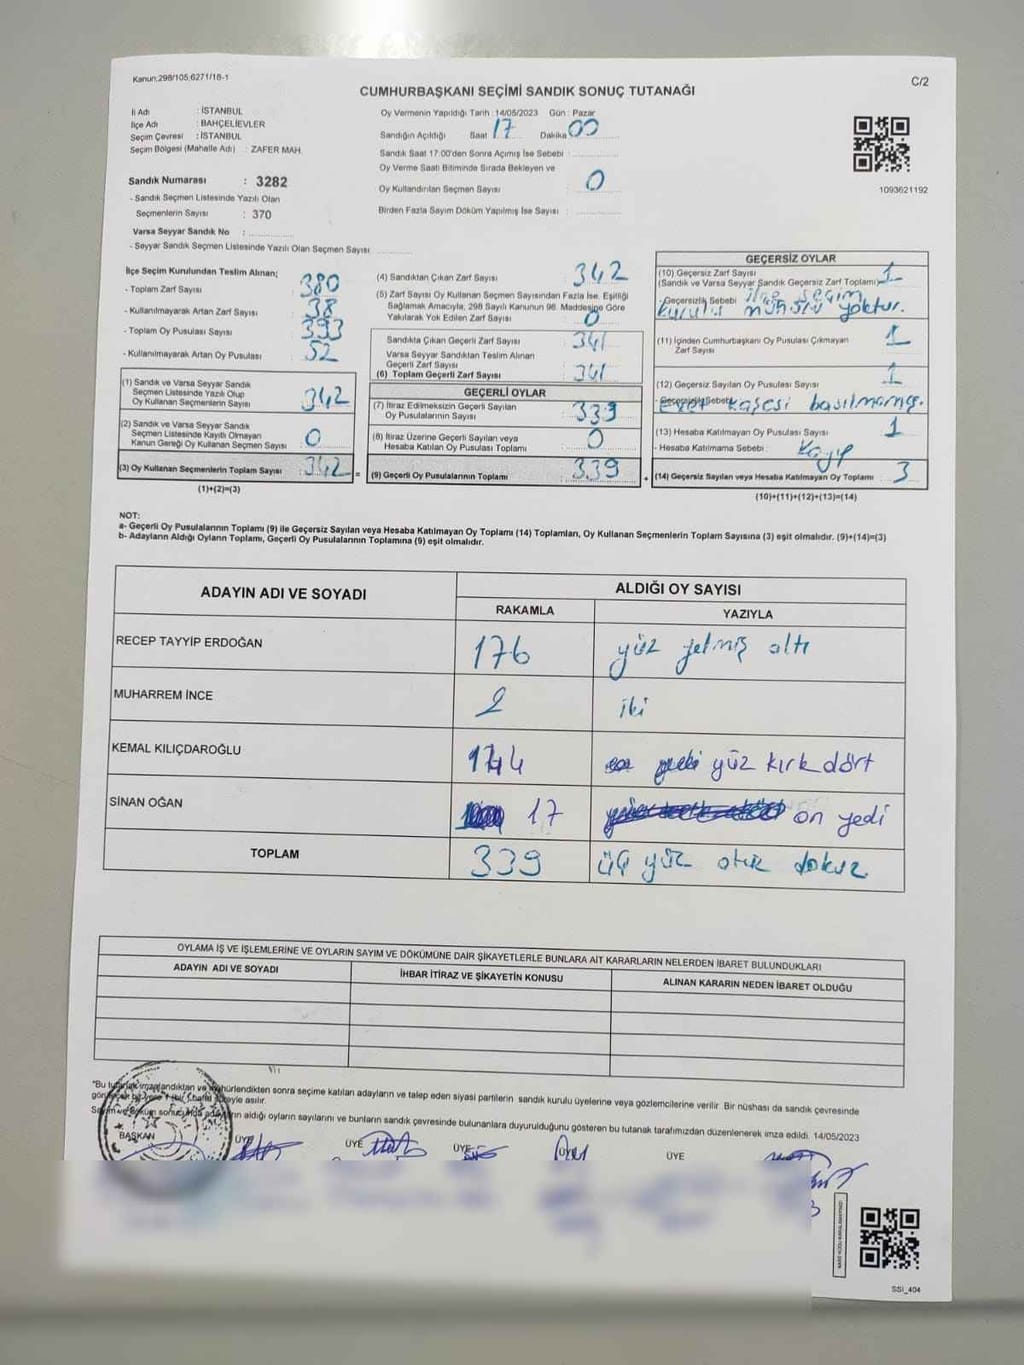 Kanun:298/105,6271/18-1
C/2
CUMHURBAŞKANI SEÇİMİ SANDIK SONUÇ TUTANAĞI
İl Adı : İSTANBUL
İlçe Adı : BAHÇELİEVLER
Seçim Çevresi : İSTANBUL
Seçim Bölgesi (Mahalle Adı) : ZAFER MAH.
Sandık Numarası : 3282
- Sandık Seçmen Listesinde Yazılı Olan
Seçmenlerin Sayısı : 370
Varsa Seyyar Sandık No :
- Seyyar Sandık Seçmen Listesinde Yazılı Olan Seçmen Sayısı
Oy Vermenin Yapıldığı Tarih : 14/05/2023 Gün : Pazar
Sandığın Açıldığı Saat 17 Dakika 00
Sandık Saat 17:00'den Sonra Açımış İse Sebebi :
Oy Verme Saati Bitiminde Sırada Bekleyen ve
Oy Kullandırılan Seçmen Sayısı : 0
Birden Fazla Sayım Döküm Yapılmış İse Sayısı :
1093621192
İlçe Seçim Kurulundan Teslim Alınan;
- Toplam Zarf Sayısı : 380
- Kullanılmayarak Artan Zarf Sayısı : 38
- Toplam Oy Pusulası Sayısı : 393
- Kullanılmayarak Artan Oy Pusulası : 52
(1) Sandık ve Varsa Seyyar Sandık
Seçmen Listesinde Yazılı Olup
Oy Kullanan Seçmenlerin Sayısı : 342
(2) Sandık ve Varsa Seyyar Sandık
Seçmen Listesinde Kayıtlı Olmayan
Kanun Gereği Oy Kullanan Seçmen Sayısı : 0
(3) Oy Kullanan Seçmenlerin Toplam Sayısı : 342 =
(1)+(2)=(3)
(4) Sandıktan Çıkan Zarf Sayısı : 342
(5) Zarf Sayısı Oy Kullanan Seçmen Sayısından Fazla İse, Eşitliği
Sağlamak Amacıyla, 298 Sayılı Kanunun 98. Maddesine Göre
Yakılarak Yok Edilen Zarf Sayısı : 0
Sandıkta Çıkan Geçerli Zarf Sayısı : 341
Varsa Seyyar Sandıktan Teslim Alınan
Geçerli Zarf Sayısı :
(6) Toplam Geçerli Zarf Sayısı : 341
GEÇERLİ OYLAR
(7) İtiraz Edilmeksizin Geçerli Sayılan
Oy Pusulalarının Sayısı : 339
(8) İtiraz Üzerine Geçerli Sayılan veya
Hesaba Katılan Oy Pusulası Toplamı : 0
(9) Geçerli Oy Pusulalarının Toplamı : 339 +
GEÇERSİZ OYLAR
(10) Geçersiz Zarf Sayısı
(Sandık ve Varsa Seyyar Sandık Geçersiz Zarf Toplamı) 1
- Geçersizlik Sebebi : ilçe seçim
kurulu mührü yoktur.
(11) İçinden Cumhurbaşkanı Oy Pusulası Çıkmayan
Zarf Sayısı : 1
(12) Geçersiz Sayılan Oy Pusulası Sayısı : 1
- Geçersizlik Sebebi :
Evet kaşesi basılmamış.
(13) Hesaba Katılmayan Oy Pusulası Sayısı : 1
- Hesaba Katılmama Sebebi : Kayıp
(14) Geçersiz Sayılan veya Hesaba Katılmayan Oy Toplamı : 3
(10)+(11)+(12)+(13)=(14)
NOT:
a- Geçerli Oy Pusulalarının Toplamı (9) ile Geçersiz Sayılan veya Hesaba Katılmayan Oy Toplamı (14) Toplamları, Oy Kullanan Seçmenlerin Toplam Sayısına (3) eşit olmalıdır. (9)+(14)=(3)
b- Adayların Aldığı Oyların Toplamı, Geçerli Oy Pusulalarının Toplamına (9) eşit olmalıdır.
ADAYIN ADI VE SOYADI
ALDIĞI OY SAYISI
RAKAMLA YAZIYLA
RECEP TAYYİP ERDOĞAN 176 yüz yetmiş altı
MUHARREM İNCE 2 iki
KEMAL KILIÇDAROĞLU 144 yüz kırk dört
SİNAN OĞAN 17 on yedi
TOPLAM 339 üç yüz otuz dokuz
OYLAMA İŞ VE İŞLEMLERİNE VE OYLARIN SAYIM VE DÖKÜMÜNE DAİR ŞİKAYETLERLE BUNLARA AİT KARARLARIN NELERDEN İBARET BULUNDUKLARI
ADAYIN ADI VE SOYADI İHBAR İTİRAZ VE ŞİKAYETİN KONUSU ALINAN KARARIN NEDEN İBARET OLDUĞU
"Bu tutanak imzalandıktan ve mühürlendikten sonra seçime katılan adayların ve talep eden siyasi partilerin sandık kurulu üyelerine veya gözlemcilerine verilir. Bir nüshası da sandık çevresinde
asılır.
aldığı oyların sayılarını ve bunların sandık çevresinde bulunanlara duyurulduğunu gösteren bu tutanak tarafımızdan düzenlenerek imza edildi. 14/05/2023
BAŞKAN ÜYE ÜYE ÜYE ÜYE ÜYE
SSI_404